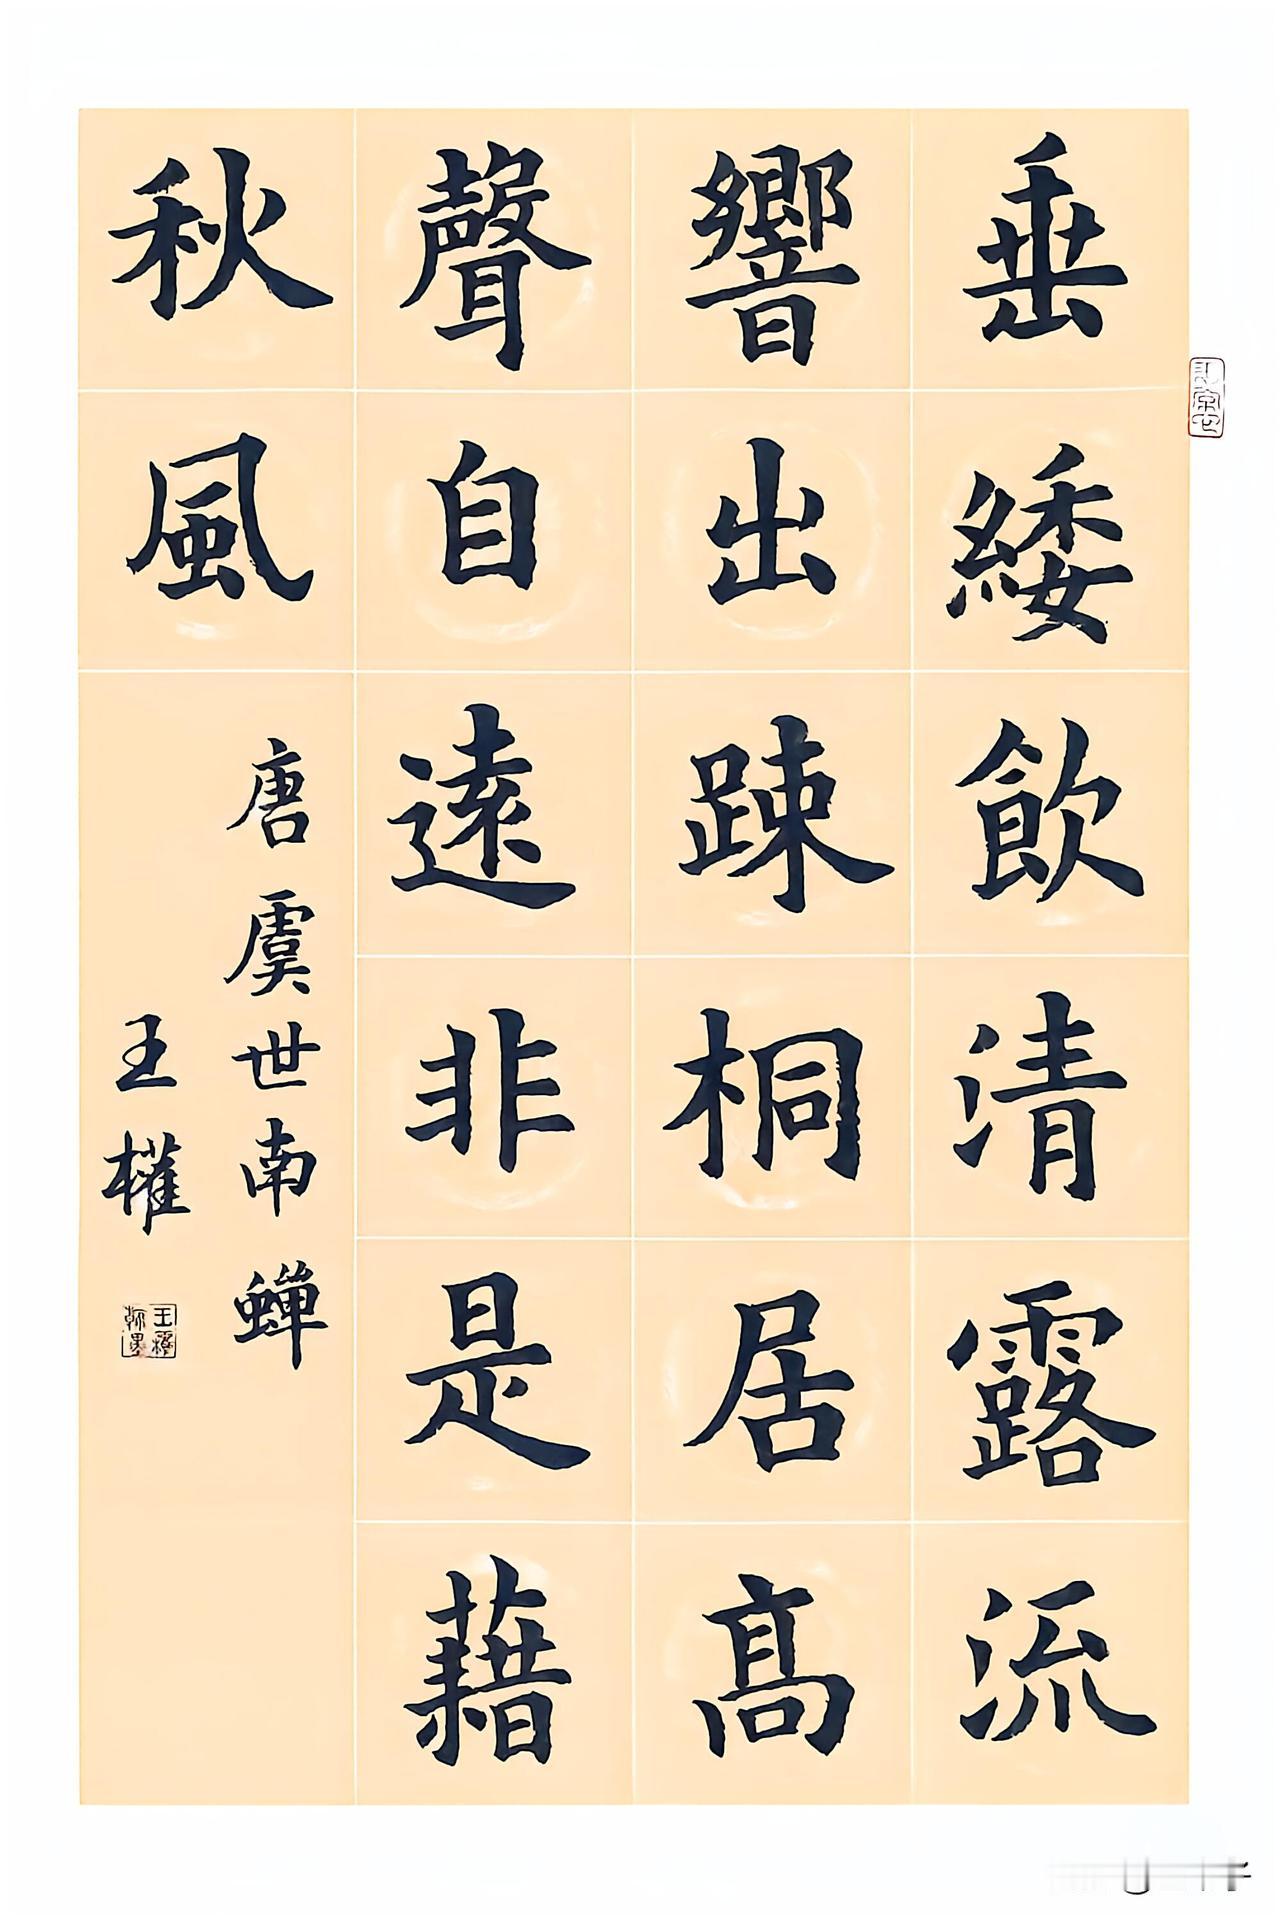 垂緌飲清露流
響出踈桐居髙
聲自遠非是藉
秋風
唐虞世南蟬
王權